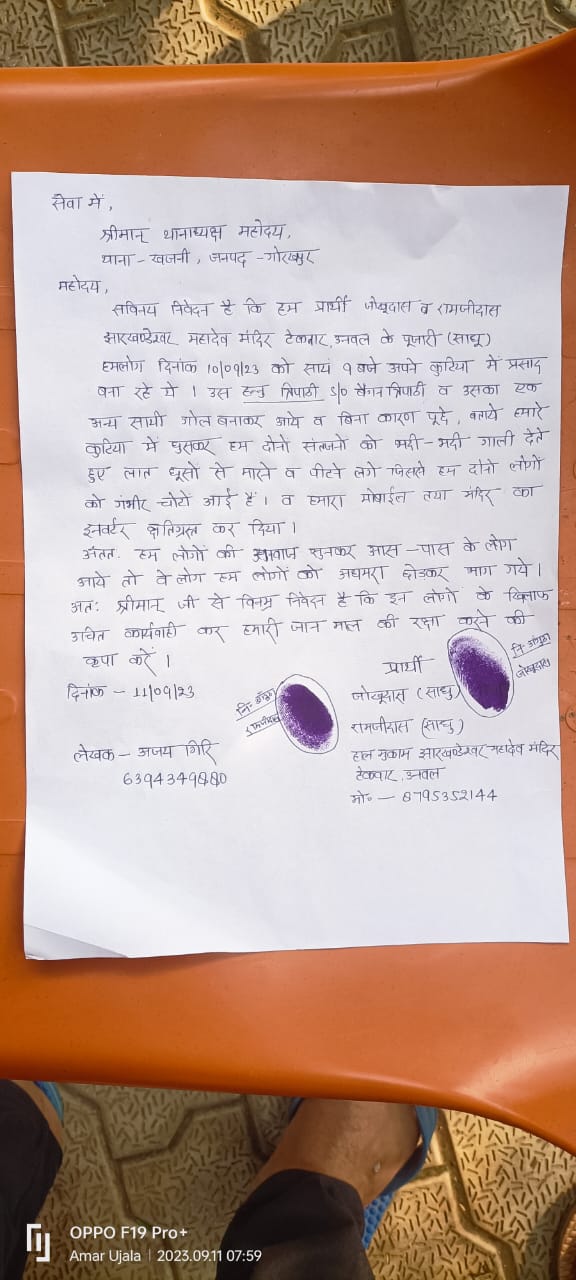 सेवा में,
श्रीमान् थानाध्यक्ष महोदय,
थाना - खजनी, जनपद - गोरखपुर
महोदय,
सविनय निवेदन है कि हम प्रार्थी जोखूदास व रामजीदास
झारखण्डेश्वर महादेव मंदिर टेकवार, उनवल के पूजारी (साधू)
हमलोग दिनांक 10/09/23 को सायं 9 बजे अपने कुटिया में प्रसाद
बना रहे थे । उस त्रिपाठी S/O बैगन त्रिपाठी व उसका एक
अन्य साथी गोल बनाकर आये व बिना कारण पूछे, बताये हमारे
कुटिया में घुसकर हम दोनो संतजनो को भदी-भदी गाली देते
हुए लात घूसों से मारने व पीटने लगे जिससे हम दोनो लोगों
को गंभीर चोटे आई हैं । व हमारा मोबाईल तथा मंदिर का
इनवर्टर क्षतिग्रस्त कर दिया ।
अंततः हम लोगों की आवाज सुनकर आस-पास के लोग
आये तो वे लोग हम लोगों को अधमरा छोडकर भाग गये ।
अतः श्रीमान् जी से विनम्र निवेदन है कि इन लोगों के खिलाफ
उचित कार्यवाही कर हमारी जान माल की रक्षा करने की
कृपा करें ।
प्रार्थी
नि॰ अंगूठा
जोखूदास
दिनांक - 11/09/23
जोखूदास (साधु)
नि॰ अंगूठा
रामजीदास
रामजीदास (साधु)
लेखक - अजय गिरि
6394349880
हाल मुकाम झारखण्डेश्वर महादेव मंदिर
टेकवार, उनवल
मो॰ - 8795352144
OPPO F19 Pro+
Amar Ujala | 2023.09.11 07:59